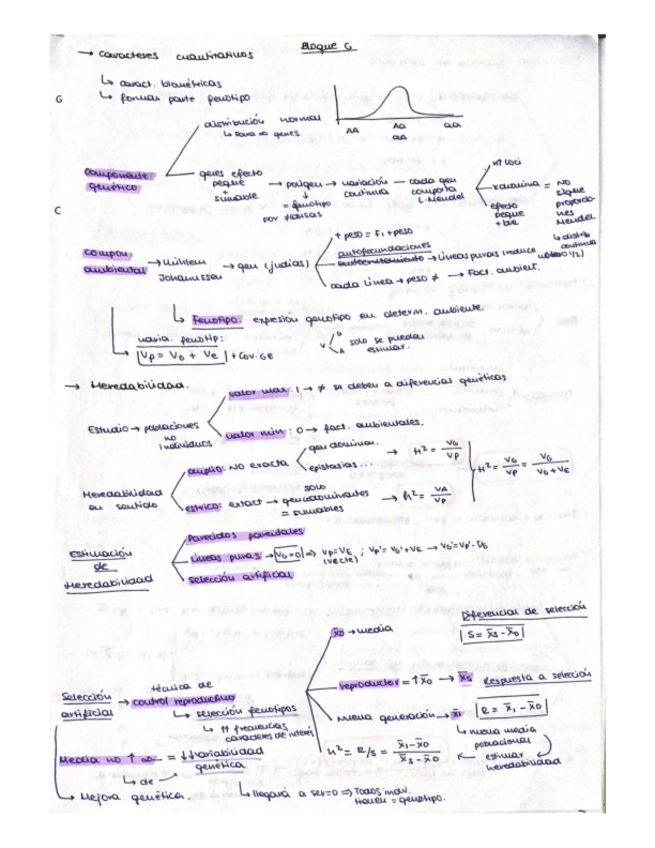 Bloque 6
→ caracteres cuantitativos
↳ caract. biométricas
↳ forman parte fenotipo
G
distribución normal
↳ para no genes.
AA
Aa
aa
aa
componente genético
genes efecto peque + sumable → poligen → variación continua — cada gen comporta L Mendel
↓
= fenotipo por causas
nº loci
efecto peque + ble
= No sigue proporciones Mendel.
↳ distrib continua
C
compon. ambiental → Wilhlem Johannssen → gen (judías)
+ peso = F1 + peso
autofecundaciones
→ Líneas puras
cada Línea → peso ≠ → Fact. ambient.
↳ Fenotipo. expresión genotipo en determ. ambiente.
varia. fenotip:
Vp = VG + Ve + Cov. GE
V
G
A
solo se pueden estimar.
→ Heredabilidad.
Estudio → poblaciones no individuos
valor max: 1 → ≠ se deben a diferencias genéticas
valor min: 0 → fact. ambientales.
Heredabilidad en sentido
amplio: NO exacta
gen dominan.
epistasias...
→ H² = VG / Vp
H² = VG / Vp = VG / VG + VE
estricto: exact → solo gen codominantes = sumables
→ h² = VA / Vp
Estimación de Heredabilidad
Parecidos parentales
Líneas puras → VG=0 ⇒ Vp=VE (VE cte) ; Vp'= VG'+VE → VG'=Vp'-VE
Selección artificial
Diferencial de selección
S = x̄s - x̄0
x̄0 → media
Selección artificial → técnica de control reproductivo
↳ selección fenotipos
↳ ↑↑ frecuencias caracteres de interés
reproductor = ↑ x̄0 → x̄s
Respuesta a selección
R = x̄1 - x̄0
Nueva generación → x̄1
↳ nueva media poblacional
estimar heredabilidad
h² = R/S = x̄1-x̄0 / x̄s-x̄0
Media no ↑ ∞ = ↓↓ variabilidad genética
↳ de
↳ Mejora genética.
↳ llegará a ser=0 ⇒ Todos indiv. tienen = genotipo.